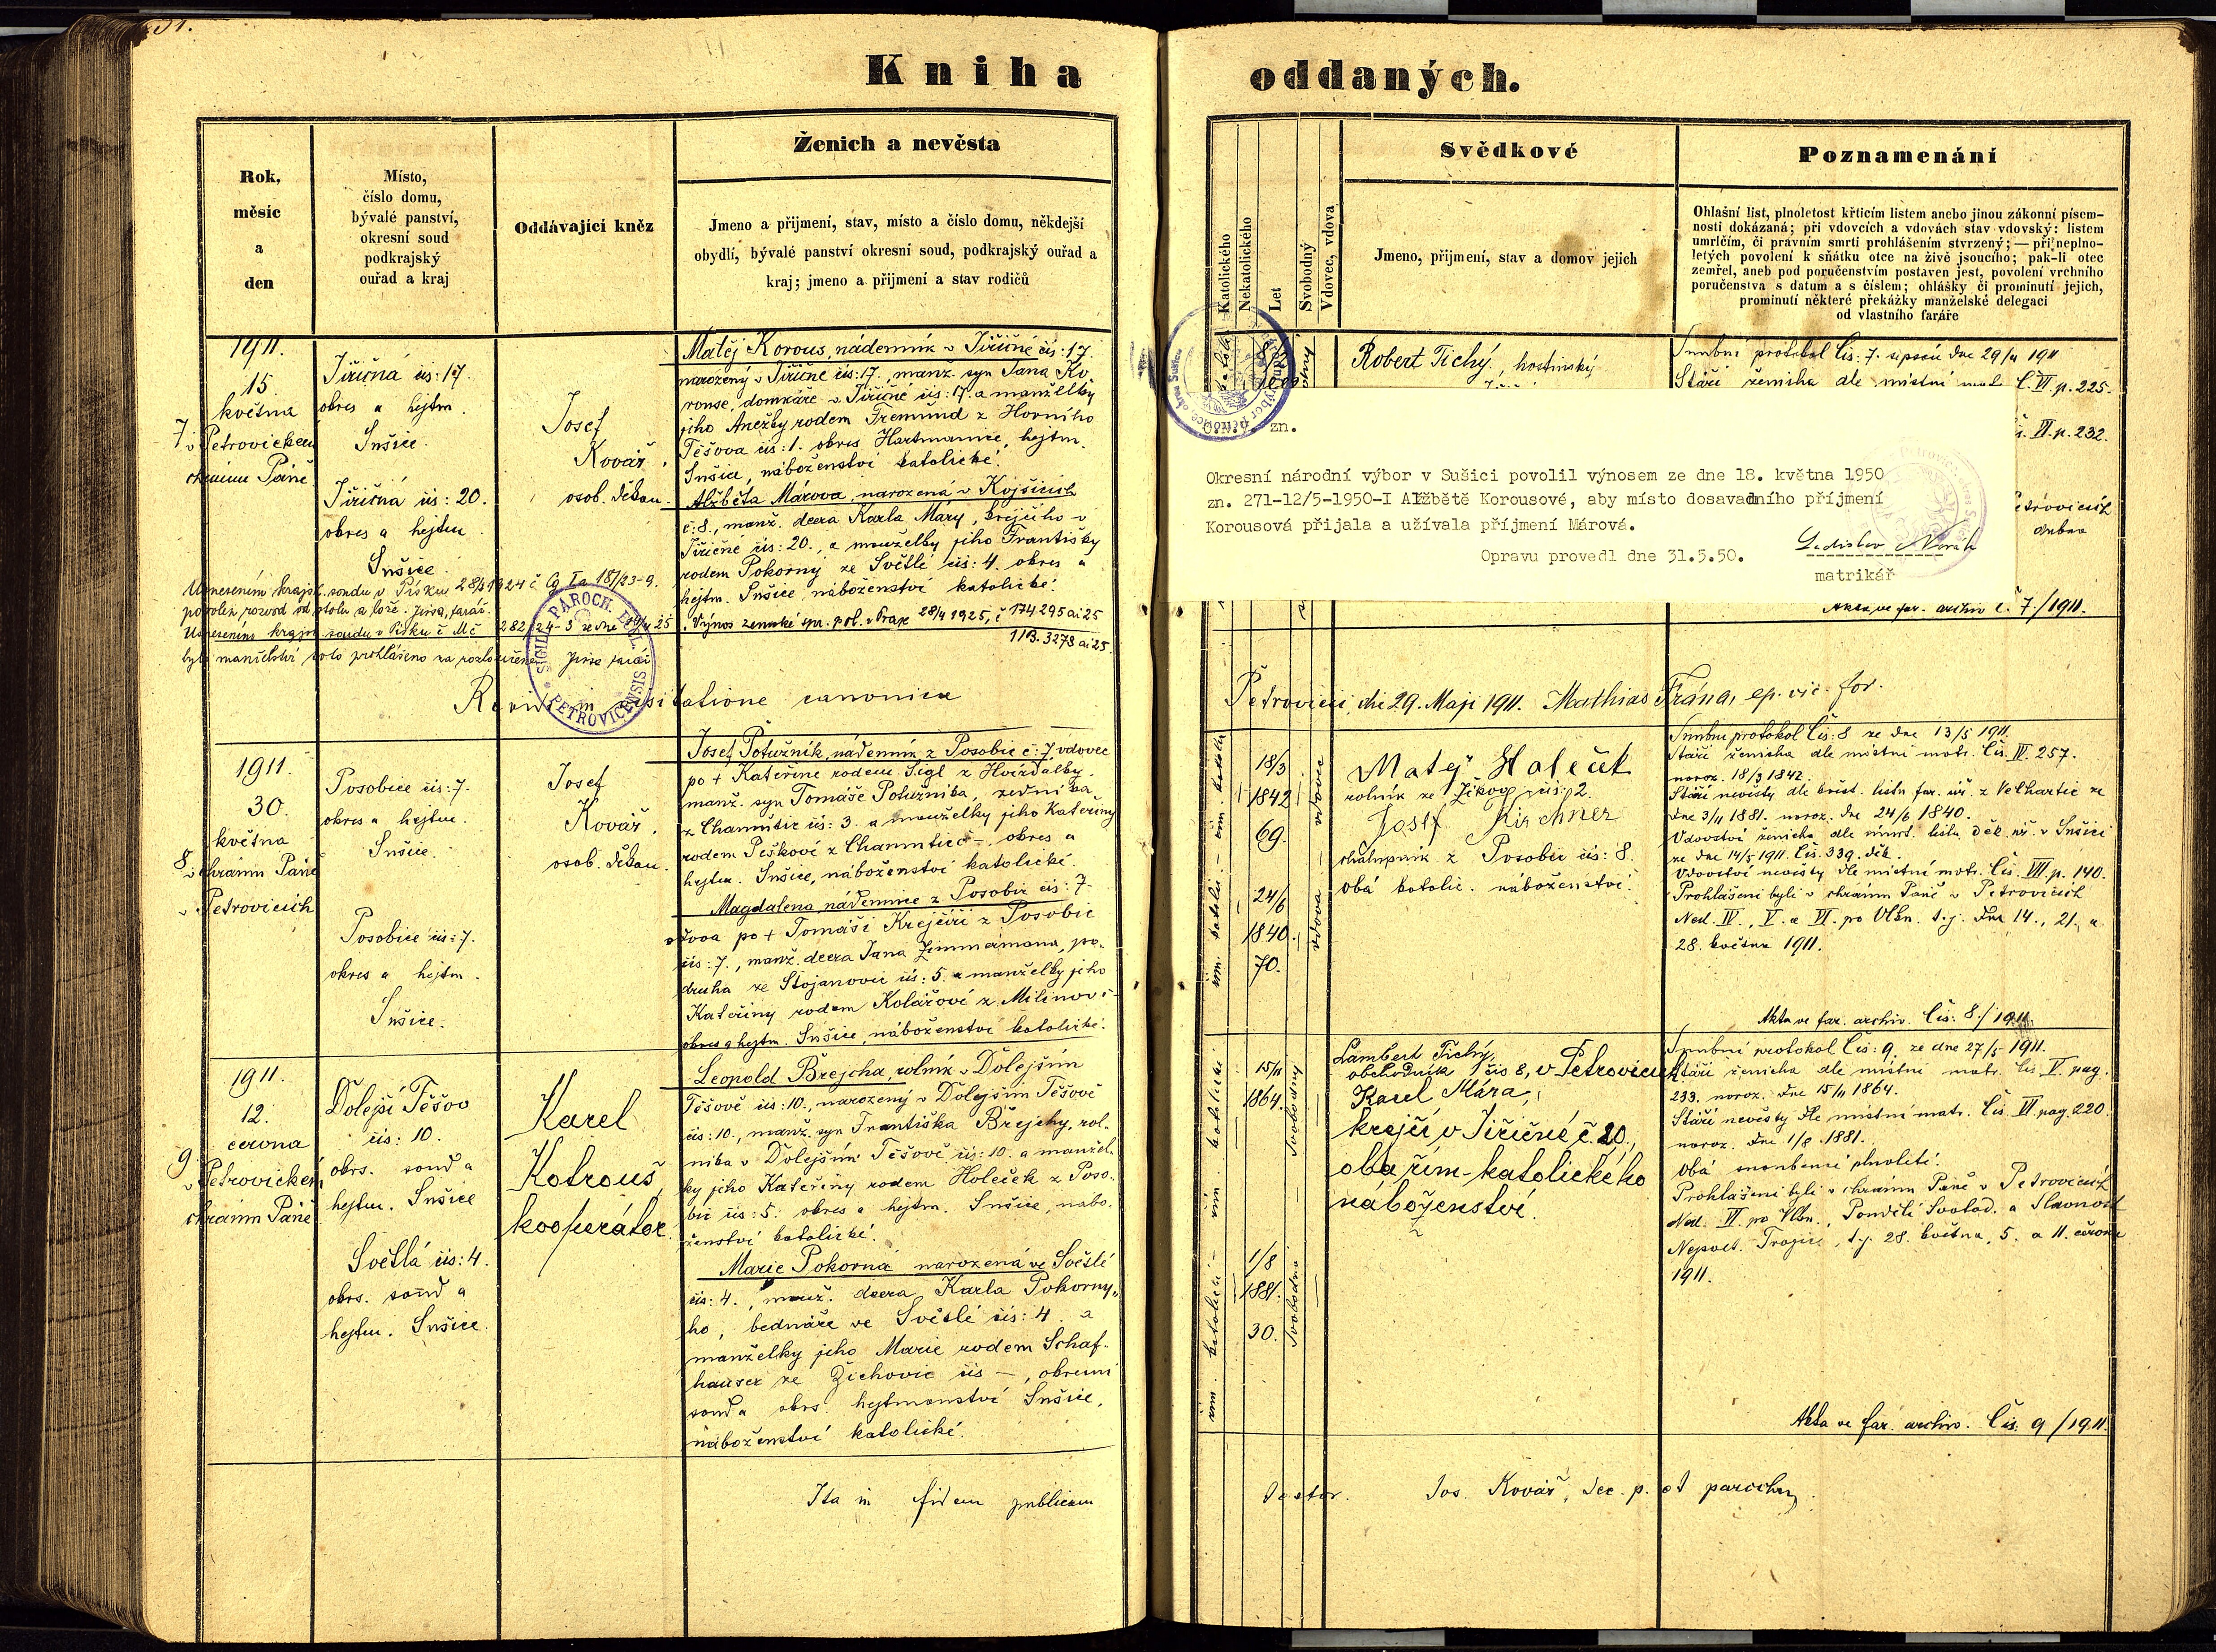 Kniha oddaných.
Rok,
měsíc
a
den
Místo,
číslo domu,
bývalé panství,
okresní soud
podkrajský
ouřad a kraj
Oddávající kněz
Ženich a nevěsta
Jmeno a přijmení, stav, místo a číslo domu, někdejší
obydlí, bývalé panství okresní soud, podkrajský ouřad a
kraj; jmeno a přijmení a stav rodičů
Katolického
Nekatolického
Let
Svobodný
Vdovec, vdova
Svědkové
Jmeno, přijmení, stav a domov jejich
Poznamenání
Ohlašní list, plnoletost křticím listem anebo jinou zákonní písem-
ností dokázaná; při vdovcích a vdovách stav vdovský: listem
umrlčím, či právním smrti prohlášením stvrzený; — při neplno-
letých povolení k sňátku otce na živě jsoucího; pak-li otec
zemřel, aneb pod poručenstvím postaven jest, povolení vrchního
poručenstva s datum a s číslem; ohlášky či prominutí jejich,
prominutí některé překážky manželské delegací
od vlastního faráře
1911.
15.
května
7
v Petrovickém
chrámu Páně
Jiřičná čís: 17.
okres a hejtm.
Sušice.
Jiřičná čís: 20.
okres a hejtm.
Sušice.
Josef
Kovář.
osob. děkan.
Matěj Korous, nádenník v Jiřičné čís: 17.
narozený v Jiřičné čís: 17., manž. syn Jana Ko-
rouse, domkáře v Jiřičné čís: 17. a manželky
jeho Anežky rodem Fremund z Horního
Těšova čís: 1. okres Hartmanice, hejtm.
Sušice, náboženství katolické.
Alžběta Márova, narozená v Kojšicích
č. 8., manž. dcera Karla Máry, krejčího v
Jiřičné čís: 20., a manželky jeho Františky
rodem Pokorny ze Světlé čís: 4. okres a
hejtm. Sušice, náboženství katolické.
Usnesením krajsk. soudu v Písku 28/3 1924 č Cg Ia 181/23-9.
povolen rozvod od stolu a lože. Jirsa, farář.
Usnesením krajsk. soudu v Písku č Nč 282/24-3 ze dne
bylo manželství toto prohlášeno za rozloučené. Jirsa farář
Výnos zemské spr. pol. v Praze 28/4 1925, č 174295 ai 25
11B. 3278 ai 25.
SIGILL. PAROCH. PETROVICENSIS
Robert Tichý, hostinský
Snubní protokol čís: 7. sepsán dne 29/4 1911
Stáří ženicha dle místní matr. č. VI p. 225.
VI. p. 232.
zn.
Okresní národní výbor v Sušici povolil výnosem ze dne 18. května 1950
zn. 271-12/5-1950-I Alžbětě Korousové, aby místo dosavadního příjmení
Korousová přijala a užívala příjmení Márová.
Opravu provedl dne 31.5.50.
Ladislav Novák
matrikář
Akta ve far. archiv č. 7/1911.
Revidi in visitatione canonica
Petrovicii, die 29. Maji 1911. Mathias Frána, ep. vic. for.
1911.
30.
května
8
v chrámu Páně
v Petrovicích
Posobice čís: 7.
okres a hejtm.
Sušice.
Posobice čís: 7.
okres a hejtm.
Sušice.
Josef
Kovář.
osob. děkan.
Josef Potužník, nádenník z Posobic č: 7 vdovec
po + Kateřině rodem Sigl z Hvížďalky.
manž. syn Tomáše Potužníka, zedníka
z Chamutic čís: 3. a manželky jeho Kateřiny
rodem Peškové z Chamutic č -. okres a
hejtm. Sušice, náboženství katolické.
Magdalena, nádennice z Posobic čís: 7.
vdova po + Tomáši Krejčíři z Posobic
čís: 7., manž. dcera Jana Zimmermana, po-
druha ze Stojanovic čís: 5. a manželky jeho
Kateřiny rodem Kolářové z Milínov č -
okres a hejtm. Sušice, náboženství katolické.
18/3
1842
69.
24/6
1840.
70.
vdovec
vdova
Matěj Haleček
rolník ze Žíkov čís: 2.
Josef Kirchner
chalupník z Posobic čís: 8.
obá katolic. náboženství.
Snubní protokol čís: 8 ze dne 13/5 1911.
Stáří ženicha dle místní matr. čís. IV. 257.
naroz. 18/3 1842.
Stáří nevěsty dle křest. listu far. úř. z Velhartic ze
dne 3/11 1881. naroz. dne 24/6 1840.
Vdovství ženicha dle úmrt. listu děk. úř. v Sušici
ze dne 14/5 1911. čís. 339. děk.
Vdovství nevěsty dle místní matr. čís. VII. p. 140.
Prohlášeni byli v chrámu Páně v Petrovicích
Ned. IV., V. a VI. po Vlkn. t. j. dne 14., 21., a
28. května 1911.
Akta ve far. archiv. čís: 8./1911.
1911.
12.
června
9
v Petrovickém
chrámu Páně
Dolejší Těšov
čís: 10.
okrs. soud a
hejtm. Sušice
Světlá čís: 4.
okrs. soud a
hejtm. Sušice.
Karel
Kotrouš,
kooperátor.
Leopold Brejcha, rolník v Dolejším
Těšově čís: 10., narozený v Dolejším Těšově
čís: 10., manž. syn Františka Brejchy, rol-
níka v Dolejším Těšově čís: 10. a manžel-
ky jeho Kateřiny rodem Holeček z Poso-
bic čís: 5. okres a hejtm. Sušice, nábo-
ženství katolické.
Marie Pokorná narozená ve Světlé
čís: 4., manž. dcera Karla Pokorny-
ho, bednáře ve Světlé čís: 4. a
manželky jeho Marie rodem Schaf-
hauser ze Žichovic čís —, okresní
soud a okrs. hejtmanství Sušice,
náboženství katolické.
15/11
1864.
svobodný
1/8
1881.
30.
svobodna
Lambert Tichý,
obchodník čís 8, v Petrovicích
Karel Mára,
krejčí v Jiřičné č. 20.,
oba řím-katolického
náboženství.
Snubní protokol čís: 9. ze dne 27/5 1911.
Stáří ženicha dle místní matr. čís V. pag.
233. naroz. dne 15/11 1864.
Stáří nevěsty dle místní matr. čís. VI pag. 220.
naroz. dne 1/8 1881.
Obá snoubenci plnoletí.
Prohlášeni byli v chrámu Páně v Petrovicích
Ned. VI. po Vlkn., Pondělí Svatod. a Slavnost
Nejsvět. Trojice, t. j. 28. května, 5. a 11. června
1911.
Akta ve far. archiv. čís: 9/1911.
Ita in fidem publicam testor. Jos. Kovář, dec. p. et parochus.